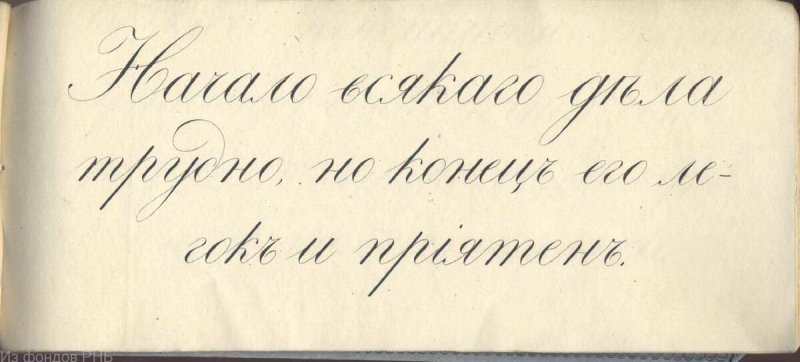 Начало всякаго дѣла
трудно, но конецъ его ле-
гокъ и пріятенъ.
Из фондов РНБ